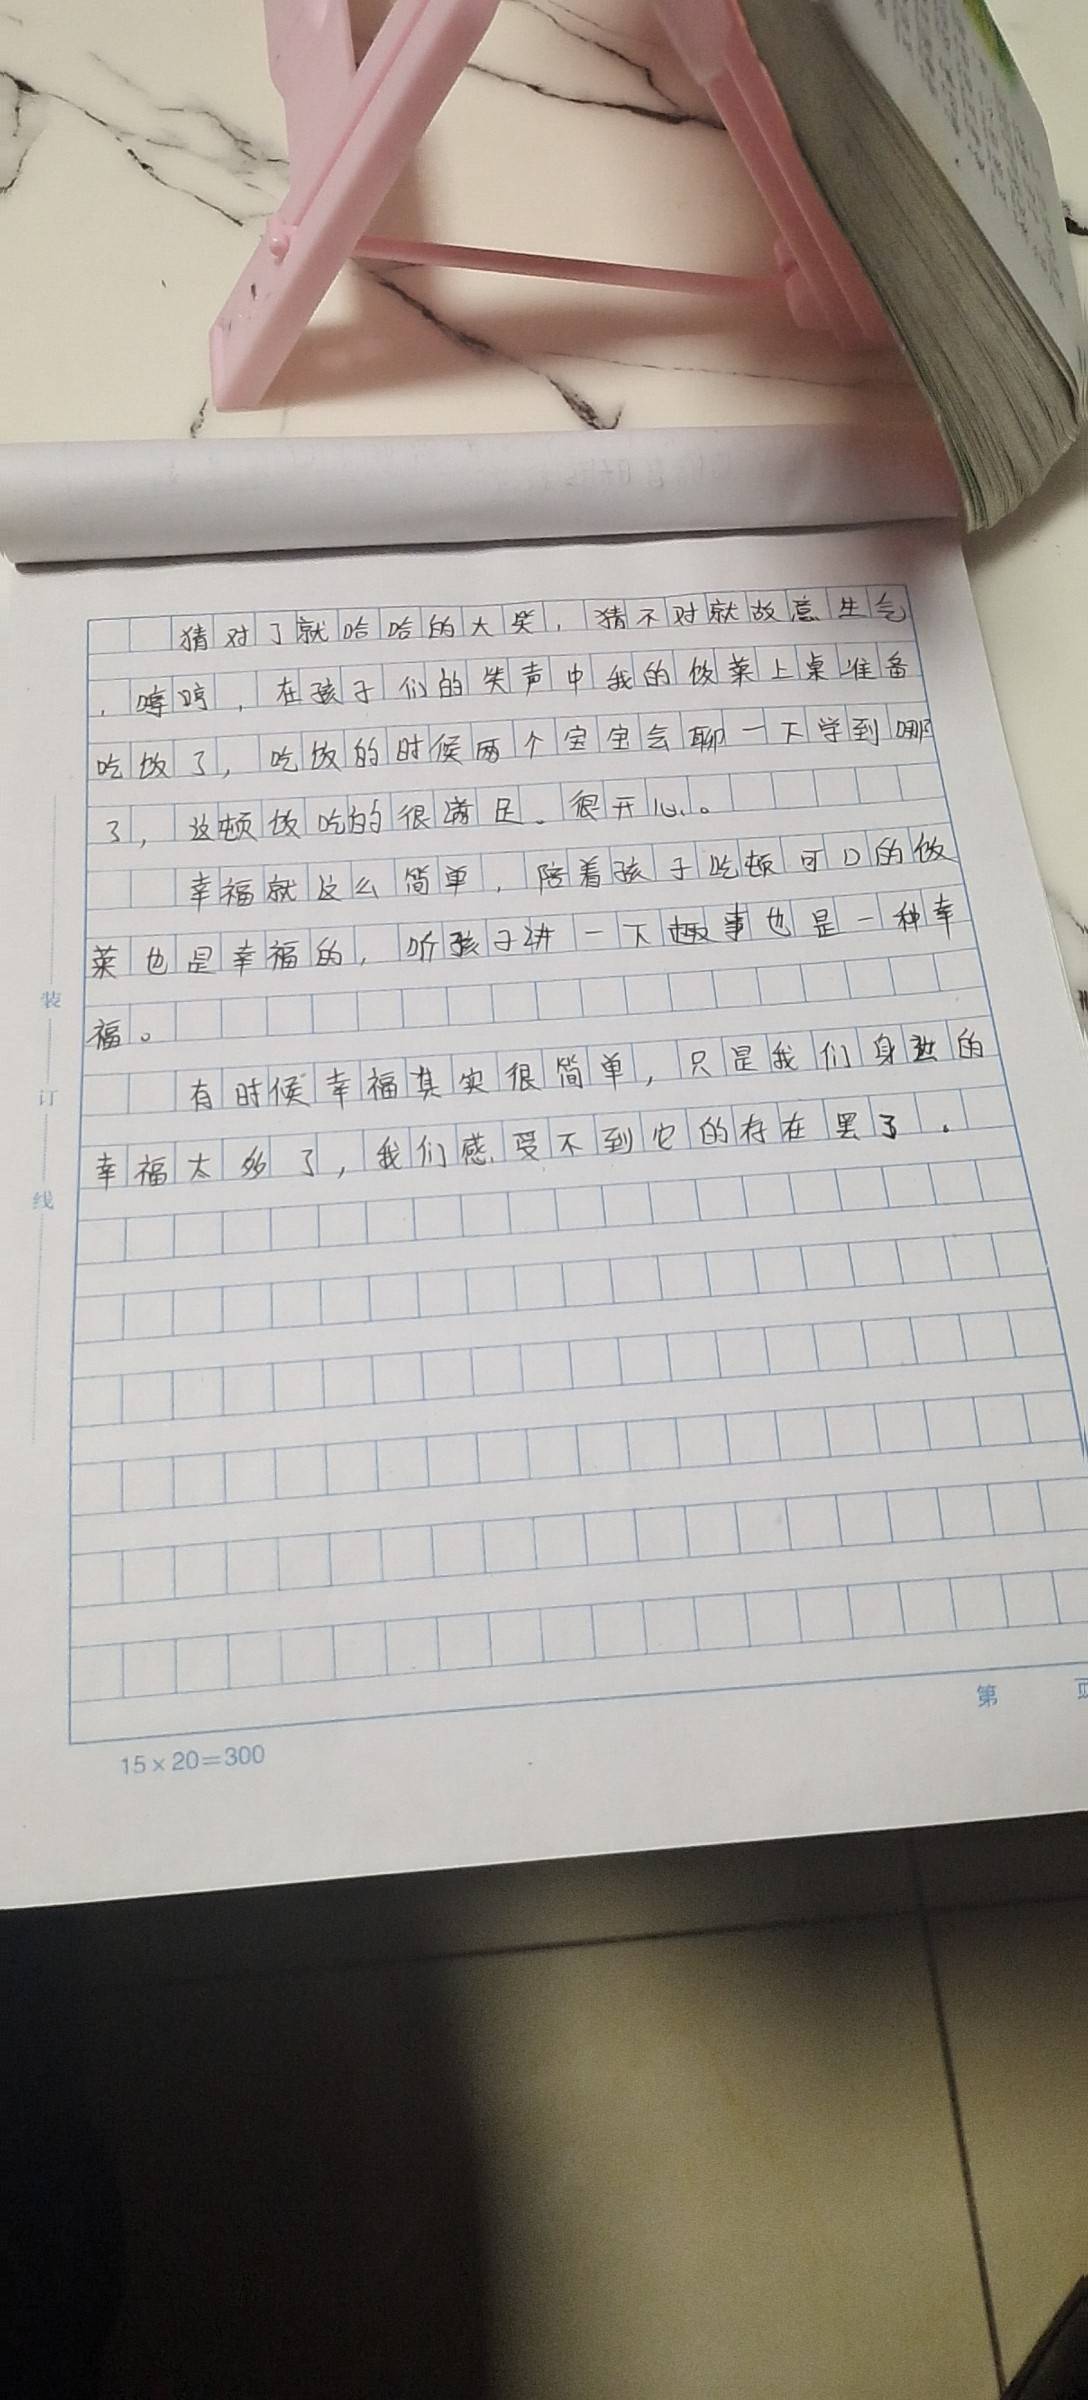 猜对了就哈哈的大笑，猜不对就故意生气
，哼哼，在孩子们的笑声中我的饭菜上桌准备
吃饭了，吃饭的时候两个宝宝会聊一下学到哪
了，这顿饭吃的很满足。很开心。
幸福就这么简单，陪着孩子吃顿可口的饭
菜也是幸福的，听孩子讲一下趣事也是一种幸
福。
有时候幸福其实很简单，只是我们身边的
幸福太多了，我们感受不到它的存在罢了。
装
订
线
第 页
15×20=300